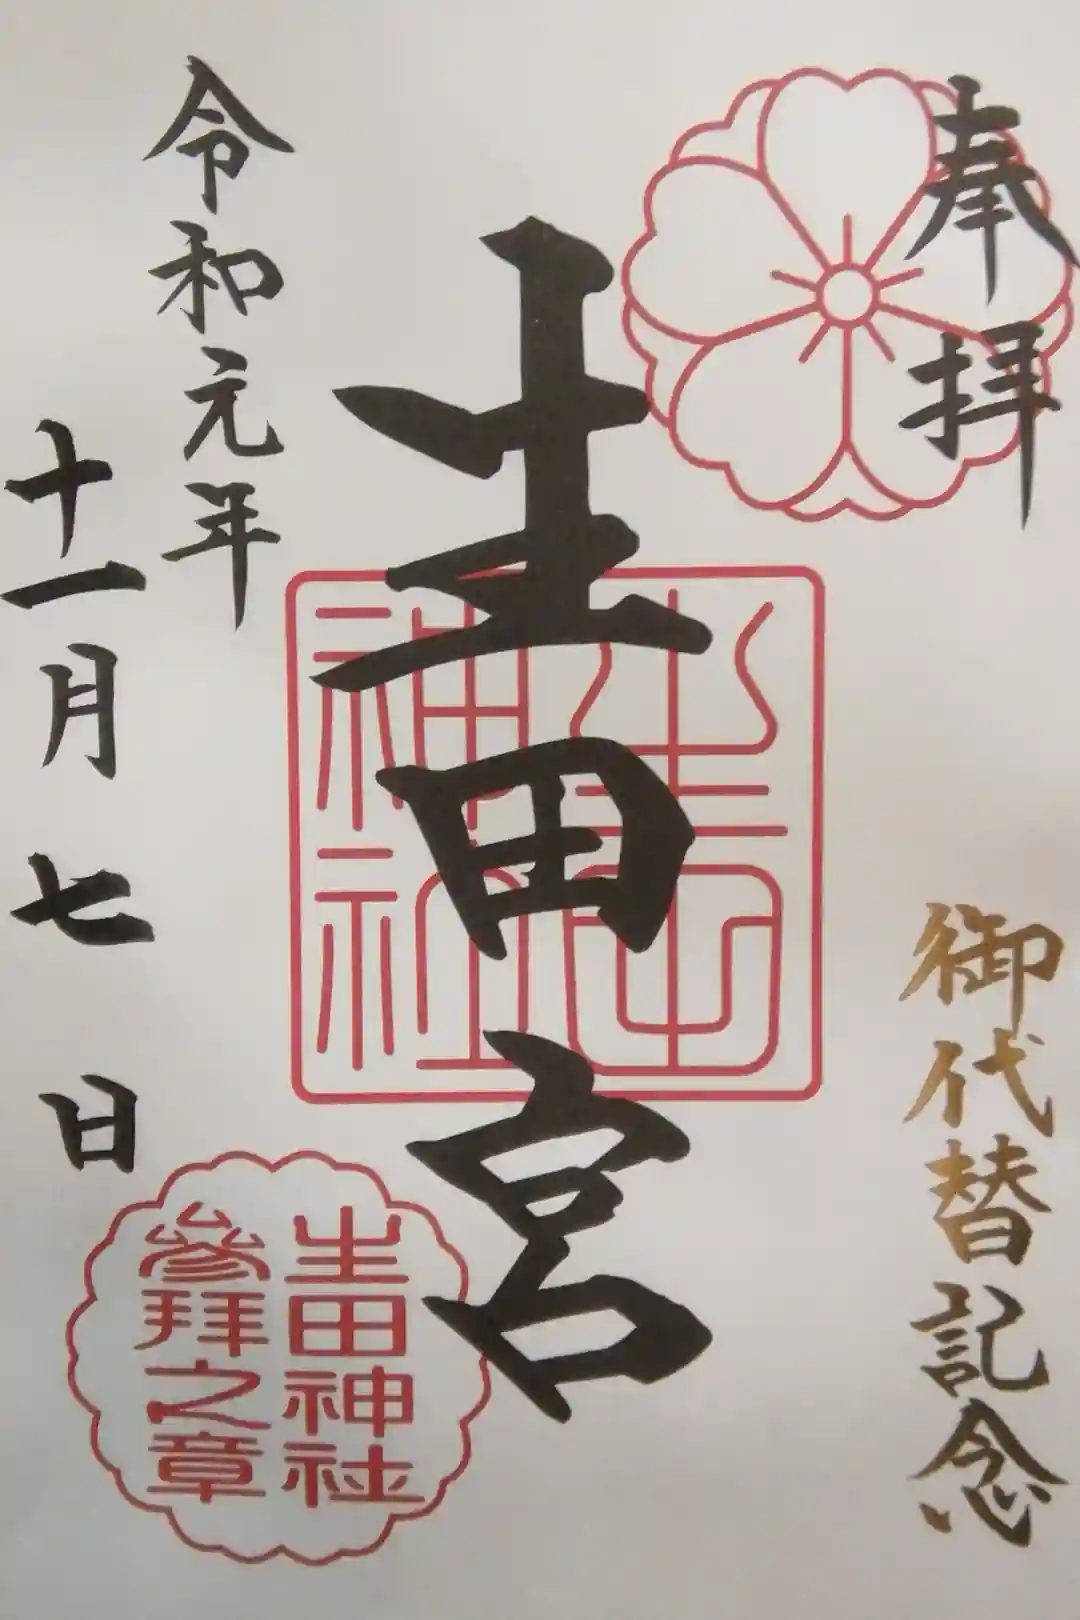 奉拝
御代替記念
生田宮
生田神社
令和元年
十一月七日
生田神社
參拜之章